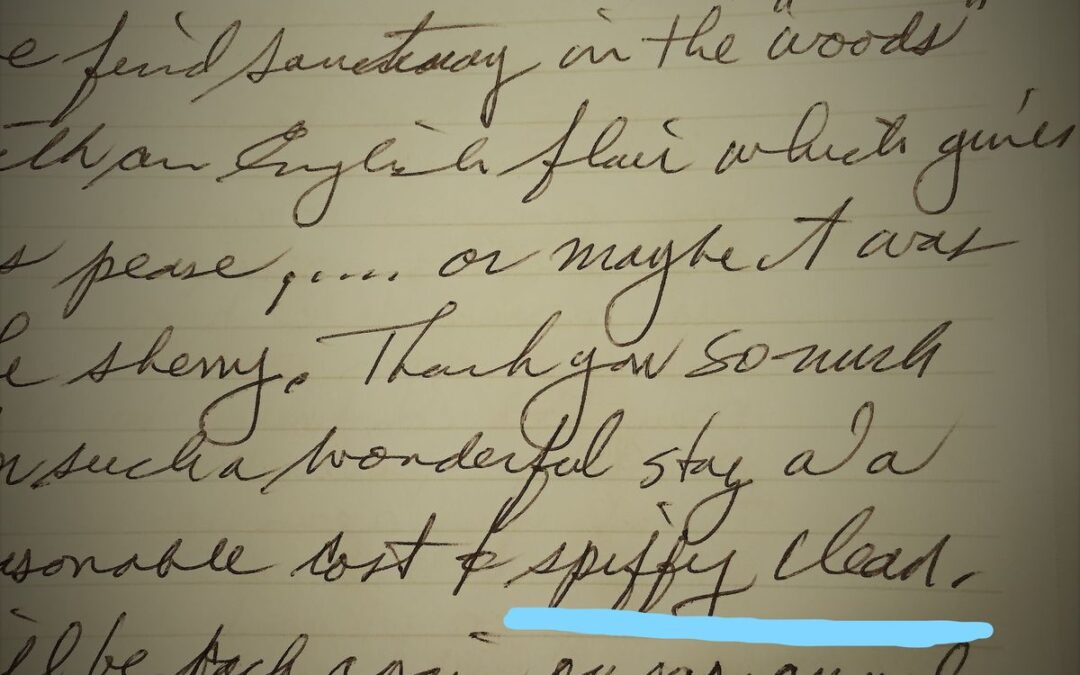 e find sanctuary in the "woods"
ith an English flair which gives
s pease,.... or maybe it was
e sherry. Thank you so much
r such a wonderful stay at a
asonable cost & spiffy clean.
'll be back again